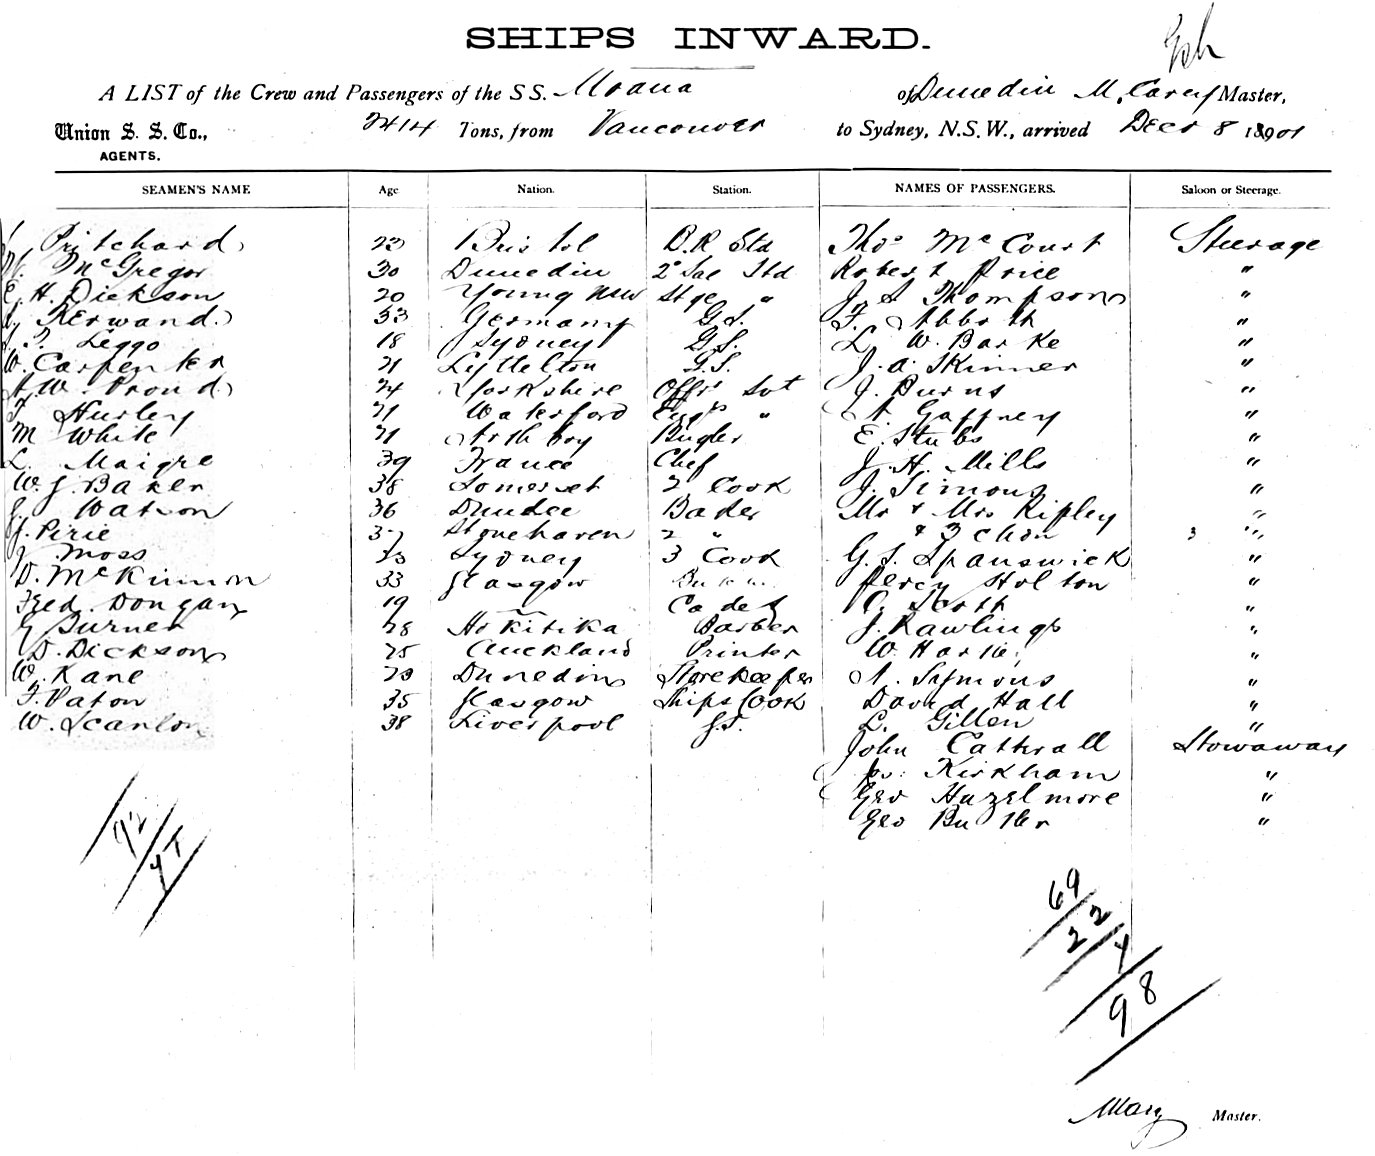 SHIPS INWARD.
A LIST of the Crew and Passengers of the S S. Moana of Dunedin M. Carey Master,
Union S. S. Co., 2414 Tons, from Vancouver to Sydney, N.S.W., arrived Decr 8 1901
AGENTS.
SEAMEN'S NAME Age Nation. Station. NAMES OF PASSENGERS. Saloon or Steerage.
Pritchard 23 Bristol B.R Std Thos McCourt Steerage
McGregor 30 Dunedin 2d Sal Std Robert Price "
E. H. Dickson 20 Young NSW Stge " J. S Thompson "
Kerwand 33 Germany G.S. F. Abbott "
Leggo 18 Sydney G.S. L. W. Barke "
W. Carpenter 21 Lyttelton G.S. J. A. Skinner "
W. Proud 24 Yorkshire Offrs Svt J. Burns "
F Hurley 21 Waterford Engrs " A. Gaffney "
M White 21 Bugler E. Stubs "
L. Maigre 39 France Chef J. H. Mills "
W. J. Baker 38 Somerset 2 Cook J. Simons "
Watson 36 Dundee Baker Mr & Mrs Ripley "
J. Pirie Stonehaven 2 " & 3 chdn 3 "
Moss 23 Sydney 3 Cook G. S. Spanswick "
D. McKinnon 33 Glasgow Percy Holton "
Fred. Dongan 19 — Cadet C. Scott "
G Turner 28 Hokitika Barber J. Rawlings "
D. Dickson 25 Auckland Printer W. "
W. Kane 23 Dunedin Storekeeper A. Symons "
F. Paton 35 Glasgow Ships Cook David Hall "
W. Scanlon 38 Liverpool G.S. L. Gillen "
John Catterall Stowaway
Jas. Kirkham "
Geo Hazelmore "
Geo Butler "
92
69
22
98
Master.